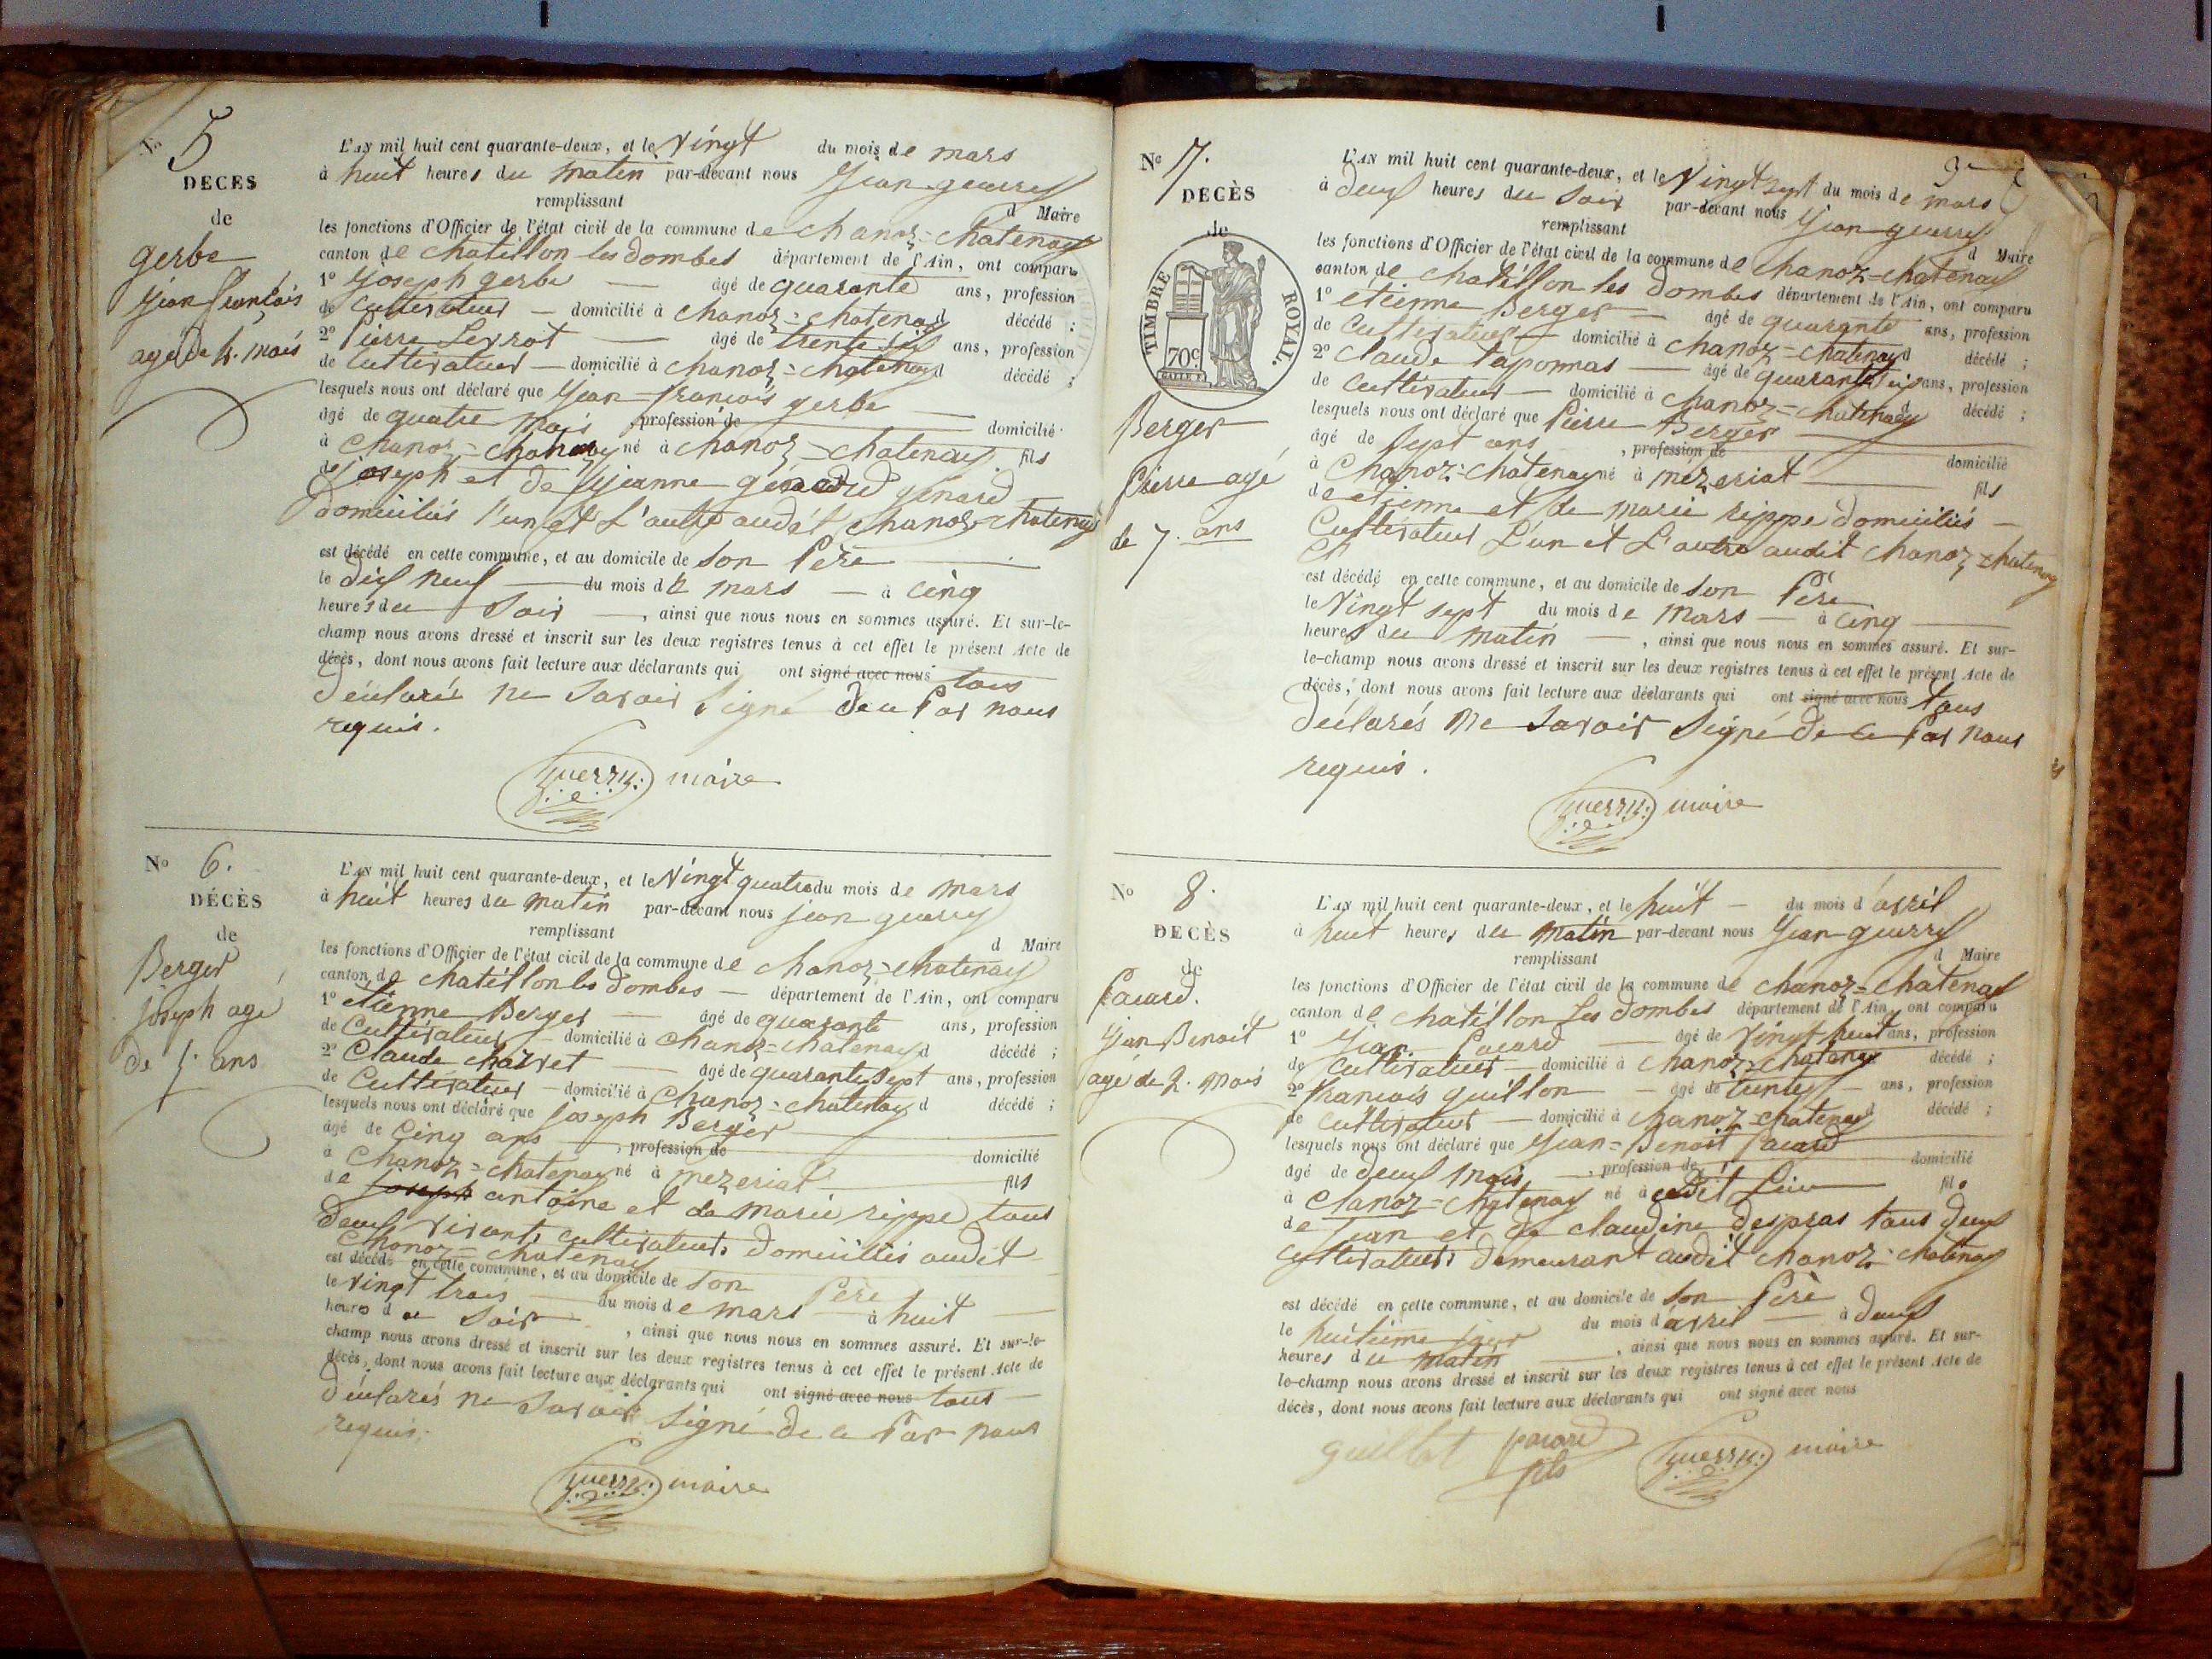 No 5
DECES
de
gerbe
jean françois
agé de 4. mois
L'AN mil huit cent quarante-deux, et le Vingt du mois de mars
à huit heures du matin par-devant nous jean guerry
remplissant d Maire
les fonctions d'Officier de l'état civil de la commune de chanoz=chatenay
canton de chatillon les dombes département de l'Ain, ont comparu
1° joseph gerbe agé de quarante ans, profession
de cultivateur domicilié à chanoz=chatenay d décédé ;
2° Pierre agé de trente ans, profession
de cultivateur domicilié à chanoz=chatenay d décédé ;
lesquels nous ont déclaré que jean=françois gerbe
âgé de quatre mois profession de domicilié
à chanoz=chatenay né à chanoz=chatenay fils
de joseph et de jeanne génard
domiciliés l'un et L'autre audit chanoz=chatenay
est décédé en cette commune, et au domicile de son Père
le dix neuf du mois de mars à cinq
heures du soir , ainsi que nous nous en sommes assuré. Et sur-le-
champ nous avons dressé et inscrit sur les deux registres tenus à cet effet le présent Acte de
décès, dont nous avons fait lecture aux déclarants qui ont signé avec nous tous
déclarés ne savoir signé de ce Par nous
requis.
guerry: maire
No 6.
DÉCÈS
de
Berger
joseph agé
de 5. ans
L'AN mil huit cent quarante-deux, et le Vingt quatre du mois de mars
à huit heures du matin par-devant nous jean guerry
remplissant d Maire
les fonctions d'Officier de l'état civil de la commune de chanoz=chatenay
canton de chatillon les dombes département de l'Ain, ont comparu
1° etienne Berger âgé de quarante ans, profession
de cultivateur domicilié à chanoz=chatenay d décédé ;
2° Claude charvet âgé de quarante sept ans, profession
de Cultivateur domicilié à Chanoz=chatenay d décédé ;
lesquels nous ont déclaré que joseph Berger
âgé de cinq ans , profession de domicilié
à Chanoz=chatenay né à mezeriat fils
de joseph antoine et de marie rippe tous
deux vivants cultivateurs domiciliés audit
chanoz=chatenay
est décédé en cette commune, et au domicile de son Père
le vingt trois du mois de mars à huit
heures du soir , ainsi que nous nous en sommes assuré. Et sur-le-
champ nous avons dressé et inscrit sur les deux registres tenus à cet effet le présent Acte de
décès, dont nous avons fait lecture aux déclarants qui ont signé avec nous tous
déclarés ne savoir signé de ce Par nous
requis.
guerry: maire
No 7.
DÉCÈS
de
TIMBRE ROYAL.
70c
Berger
Pierre agé
de 7. ans
L'AN mil huit cent quarante-deux, et le Vingt sept du mois de mars
à deux heures du soir par-devant nous jean guerry
remplissant d Maire
les fonctions d'Officier de l'état civil de la commune de chanoz=chatenay
canton de chatillon les dombes département de l'Ain, ont comparu
1° étienne Berger âgé de quarante ans, profession
de cultivateur domicilié à chanoz=chatenay d décédé ;
2° claude taponnas âgé de quarante six ans, profession
de cultivateur domicilié à chanoz=chatenay d décédé ;
lesquels nous ont déclaré que Pierre Berger
âgé de sept ans , profession de domicilié
à Chanoz=chatenay né à mézeriat fils
de etienne et de marie rippe domiciliés
Cultivateur L'un et L'autre audit chanoz=chatenay
est décédé en cette commune, et au domicile de son Père
le Vingt sept du mois de mars à cinq
heures du matin , ainsi que nous nous en sommes assuré. Et sur-
le-champ nous avons dressé et inscrit sur les deux registres tenus à cet effet le présent Acte de
décès, dont nous avons fait lecture aux déclarants qui ont signé avec nous tous
déclarés ne savoir signé de ce Par nous
requis.
guerry: maire
No 8.
DÉCÈS
de
Pacard.
jean Benoit
agé de 2. mois
L'AN mil huit cent quarante-deux, et le huit du mois d'avril
à huit heures du matin par-devant nous jean guerry
remplissant d Maire
les fonctions d'Officier de l'état civil de la commune de chanoz=chatenay
canton de chatillon Les dombes département de l'Ain, ont comparu
1° jean Pacard âgé de Vingt huit ans, profession
de cultivateur domicilié à chanoz=chatenay décédé ;
2° françois guillon âgé de trente ans, profession
de cultivateur domicilié à chanoz=chatenay d décédé ;
lesquels nous ont déclaré que jean=Benoit Pacard
âgé de deux mois , profession de domicilié
à chanoz=chatenay né à audit Lieu fils
de jean et de claudine despras tous deux
cultivateurs demeurant audit chanoz=chatenay
est décédé en cette commune, et au domicile de son Père
le huitième jour du mois d'avril à deux
heures du matin , ainsi que nous nous en sommes assuré. Et sur-
le-champ nous avons dressé et inscrit sur les deux registres tenus à cet effet le présent Acte de
décès, dont nous avons fait lecture aux déclarants qui ont signé avec nous
guillot pacard fils guerry: maire